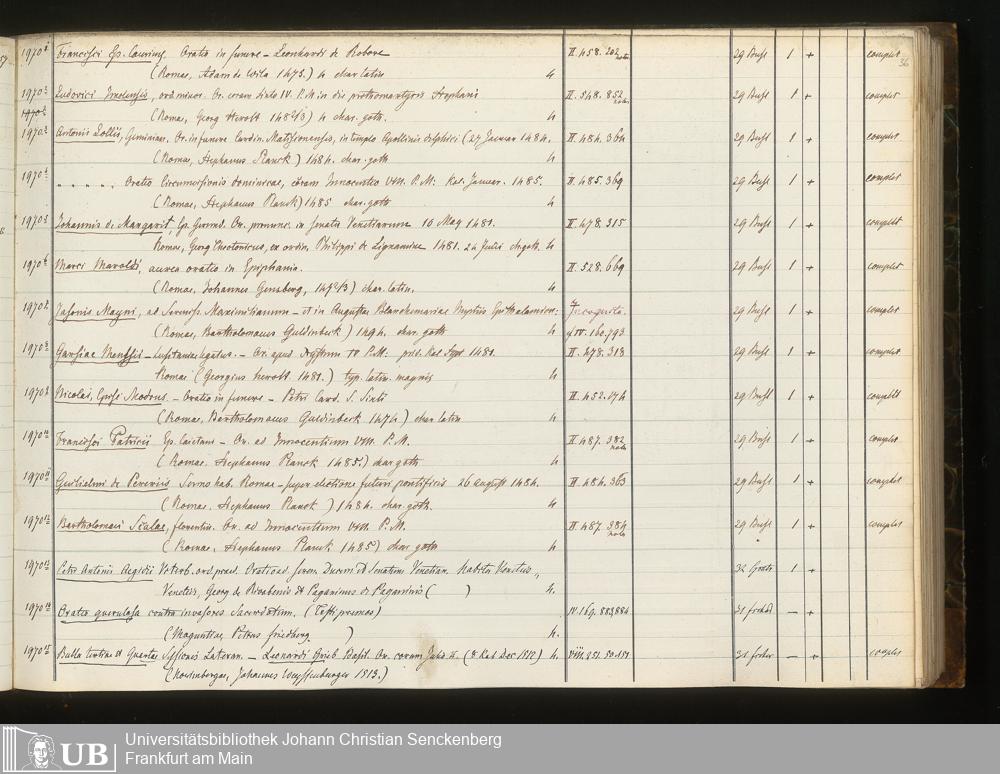 36
1970 1 Francisci Ep. Caurien, Oratio in funere – Leonhardi de Robore II. 458. 202 nota 29 Bust 1 + complet
(Romae, Adam de 1475.) 4 char latin 4
1970 2 Ludovici Imolensis, ord minor. Or. coram Sixto IV. P. M. in die protomartyris Stephani II. 548. 852 nota 29 Bust 1 + complet
1970 2 (Roma, Georg Herolt 148) 4 char. goth. 4
1970 3 Antonii Lollii, Geminian. Or. in funere Cardin. in templo Apollinis (27 Januar 1484. II. 484. 364 29 Bust 1 + complet
(Romae, Stephanus Planck) 1484. char. goth 4
1970 4 Oratio Circumcisionis dominicae, coram Innocentio VIII. P. M: Kal. Januar. 1485. II. 485. 369 29 Bust 1 + complet
(Romae, Stephanus Planck) 1485 char. goth 4
1970 5 Johannis de Margarit, Ep. Gerund. Or. pronunc. in Senatu Venetiarum 16 May 1481. II. 478. 315 29 Bust 1 + complet
Romae, Georg Theotonicus, ex ordin. Philippi de Lignamine 1481. 24 Julii 4
1970 6 Marci Maroldi, aurea oratio in Epiphania. II. 528. 669 29 Bust 1 + complet
(Romae, Johannes Gensberg, ) char. latin. 4
1970 7 Jasonis Mayni, ad Sereniss. Maximilianum – et in Augustae Blancemariae Nuptiis Epithalamion: IV. 160. 793 29 Bust 1 + complet
(Romae, Bartholomaeus Guldinbeck) 1494. char. goth 4
1970 8 Garsiae Menesii – Lusitaniae legatus. – Or. apud Sixtum IV P. M: prid. Kal Sept 1481. II. 278. 313 29 Bust 1 + complet
Romae (Georgius herolt 1481.) typ. latin. magnis 4
1970 9 Nicolai, Episc. Modrus. – Oratio in funere – Petri Card. S. Sixti II. 452. 174 29 Bust 1 + complet
(Romae, Bartholomaeus Guldinbeck 1474) char latin 4
1970 10 Francisci Patricii Ep. Caietani – Or. ad Innocentium VIII. P. M. II. 487. 382 nota 29 Bust 1 + complet
(Romae, Stephanus Planck 1485.) char goth 4
1970 11 Guilielmi de Pereriis Sermo hab. Romae – super electione futuri pontificis 26 august 1484. II. 484. 363 29 Bust 1 + complet
(Romae, Stephanus Planck) 1484. char. goth. 4
1970 12 Bartholomaei Scalae, florentin. Or. ad Innocentium VIII. P. M. II. 487. 384 nota 29 Bust 1 + complet
(Romae, Stephanus Planck 1485) char goth 4
1970 13 Petri Antonii Aegidii Viterb. Oratio ad seren. Ducem et Senatum Venetian. habita Venetiis „ 32 1 +
Venetiis, Georg de Rivabenis et Paganinus de Paganinis ( ) 4.
1970 14 Oratio querulosa contra invasores Sacerdotum. IV. 169. 883,884 31 – +
(Moguntiae, Petrus friedberg ) 4.
1970 15 Bulla tertiae et Quartae Sessionis Lateran. – Leonardi Basil. Or. coram Julio II. (8 Kal Dec 1512) 4. VIII. 351. 50. 151 31 – + complet
(Norinbergae, Johannes Weyssenburger 1513.)
UB
Universitätsbibliothek Johann Christian Senckenberg
Frankfurt am Main